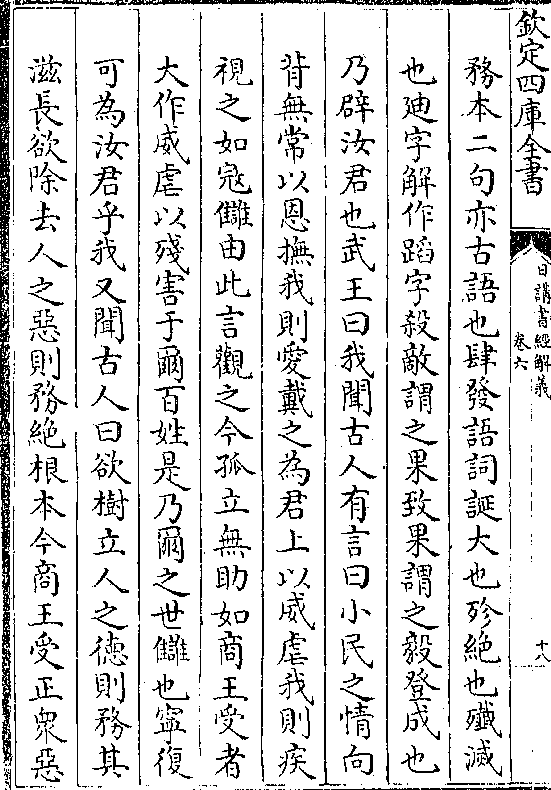 欽定四庫全書
日講書經解義
卷六
十八
務本二句亦古語也肆發語詞誕大也殄絶也殲滅
也廸字解作蹈字殺敵謂之果致果謂之毅登成也
乃辟汝君也武王曰我聞古人有言曰小民之情向
背無常以恩撫我則愛戴之為君上以威虐我則疾
視之如寇讎由此言觀之今孤立無助如商王受者
大作威虐以殘害于爾百姓是乃爾之世讎也寧復
可為汝君乎我又聞古人曰欲樹立人之德則務其
滋長欲除去人之惡則務絶根本今商王受正衆惡